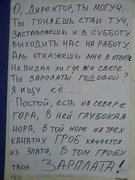 О, ДИРЕКТОР, ТЫ МОГУЧ,
ТЫ ГОНЯЕШЬ СТАИ ТУЧ,
ЗАСТАВЛЯЕШЬ И В СУББОТУ
ВЫХОДИТЬ НАС НА РАБОТУ.
АЛЬ ОТКАЖЕШЬ МНЕ В ОТВЕТЕ
НЕ ВИДАЛ ЛИ ГДЕ НА СВЕТЕ
ТЫ ЗАРПЛАТЫ ГОДОВОЙ?
Я ИЩУ ЕЁ...
"ПОСТОЙ, ЕСТЬ НА СЕВЕРЕ
ГОРА, В НЕЙ ГЛУБОКАЯ
НОРА, В ТОЙ НОРЕ НА ТРЕХ
КАНАТАХ ГРОБ КАЧАЕТСЯ
ИЗ ЗЛАТА, В ТОМ ГРОБУ
ТВОЯ ЗАРПЛАТА!